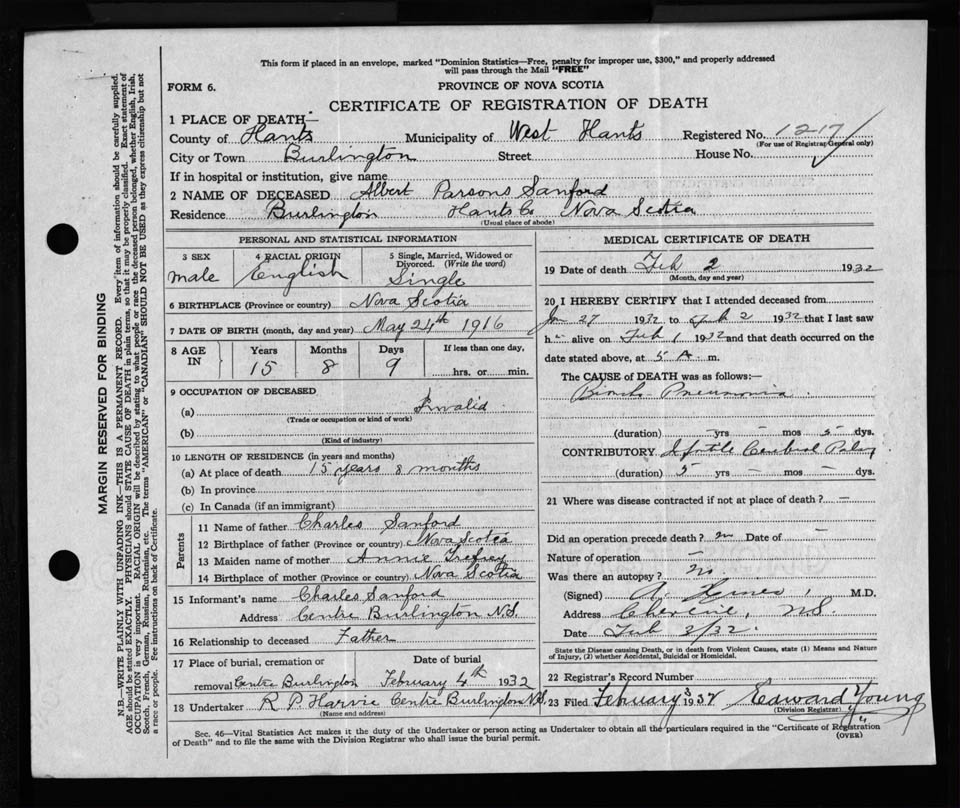 This form if placed in an envelope, marked "Dominion Statistics—Free, penalty for improper use, $300," and properly addressed
will pass through the Mail "FREE"
FORM 6.
PROVINCE OF NOVA SCOTIA
CERTIFICATE OF REGISTRATION OF DEATH
1 PLACE OF DEATH—
County of Hants Municipality of West Hants Registered No. 1217
(For use of Registrar General only)
City or Town Burlington Street House No.
If in hospital or institution, give name
2 NAME OF DECEASED Albert Parsons Sanford
Residence Burlington Hants Co Nova Scotia
(Usual place of abode)
PERSONAL AND STATISTICAL INFORMATION
3 SEX 4 RACIAL ORIGIN 5 Single, Married, Widowed or
Divorced. (Write the word)
male English Single
6 BIRTHPLACE (Province or country) Nova Scotia
7 DATE OF BIRTH (month, day and year) May 24th 1916
8 AGE IN Years Months Days If less than one day,
15 8 9 hrs. or min.
9 OCCUPATION OF DECEASED
(a) Invalid
(Trade or occupation or kind of work)
(b)
(Kind of industry)
10 LENGTH OF RESIDENCE (in years and months)
(a) At place of death 15 years 8 months
(b) In province
(c) In Canada (if an immigrant)
Parents
11 Name of father Charles Sanford
12 Birthplace of father (Province or country) Nova Scotia
13 Maiden name of mother Annie Trefrey
14 Birthplace of mother (Province or country) Nova Scotia
15 Informant's name Charles Sanford
Address Centre Burlington N.S.
16 Relationship to deceased Father
17 Place of burial, cremation or Date of burial
removal Centre Burlington February 4th 1932
18 Undertaker R P Harvie Centre Burlington N.S.
(Name and address)
MEDICAL CERTIFICATE OF DEATH
19 Date of death Feb 2 1932
(Month, day and year)
20 I HEREBY CERTIFY that I attended deceased from
Jan 27 1932 to Feb 2 1932 that I last saw
h alive on Feb 1 1932 and that death occurred on the
date stated above, at 5 A m.
The CAUSE of DEATH was as follows:—
Broncho Pneumonia
(duration) – yrs – mos 5 dys.
CONTRIBUTORY Infantile Cerebral Palsy
(duration) 5 yrs – mos – dys.
21 Where was disease contracted if not at place of death? –
Did an operation precede death? no Date of –
Nature of operation –
Was there an autopsy? no
(Signed) M.D.
Address Cheverie, N.S.
Date Feb 2/32.
State the Disease causing Death, or in death from Violent Causes, state (1) Means and Nature
of Injury, (2) whether Accidental, Suicidal or Homicidal.
22 Registrar's Record Number
23 Filed February 3 1932 Edward Young
(Division Registrar)
Sec. 46—Vital Statistics Act makes it the duty of the Undertaker or person acting as Undertaker to obtain all the particulars required in the "Certificate of Registration
of Death" and to file the same with the Division Registrar who shall issue the burial permit.
(OVER)
MARGIN RESERVED FOR BINDING
N.B.—WRITE PLAINLY WITH UNFADING INK—THIS IS A PERMANENT RECORD. Every item of information should be carefully supplied.
AGE should be stated EXACTLY. PHYSICIANS should STATE CAUSE OF DEATH in plain terms, so that it may be properly classified. Exact statement of
OCCUPATION is very important. RACIAL ORIGIN will be described by stating to what people or race the deceased person belonged, whether English, Irish,
Scotch, French, German, Russian, Ruthenian, etc. The terms "AMERICAN" or "CANADIAN" SHOULD NOT BE USED as they express citizenship but not
a race or people. Fee instructions on back of Certificate.